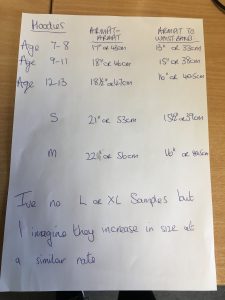 Hoodies ARMPIT- ARMPIT ARMPIT TO WAISTBAND
Age 7-8 17" or 43cm 13" or 33cm
Age 9-11 18" or 46cm 15" or 38cm
Age 12-13 18½" or 47cm 16" or 40.5cm
S 21" or 53cm 15½" or 39cm
M 22½" or 56cm 16" or 40.5cm
I've no L or XL Samples but
I imagine they increase in size at
a similar rate